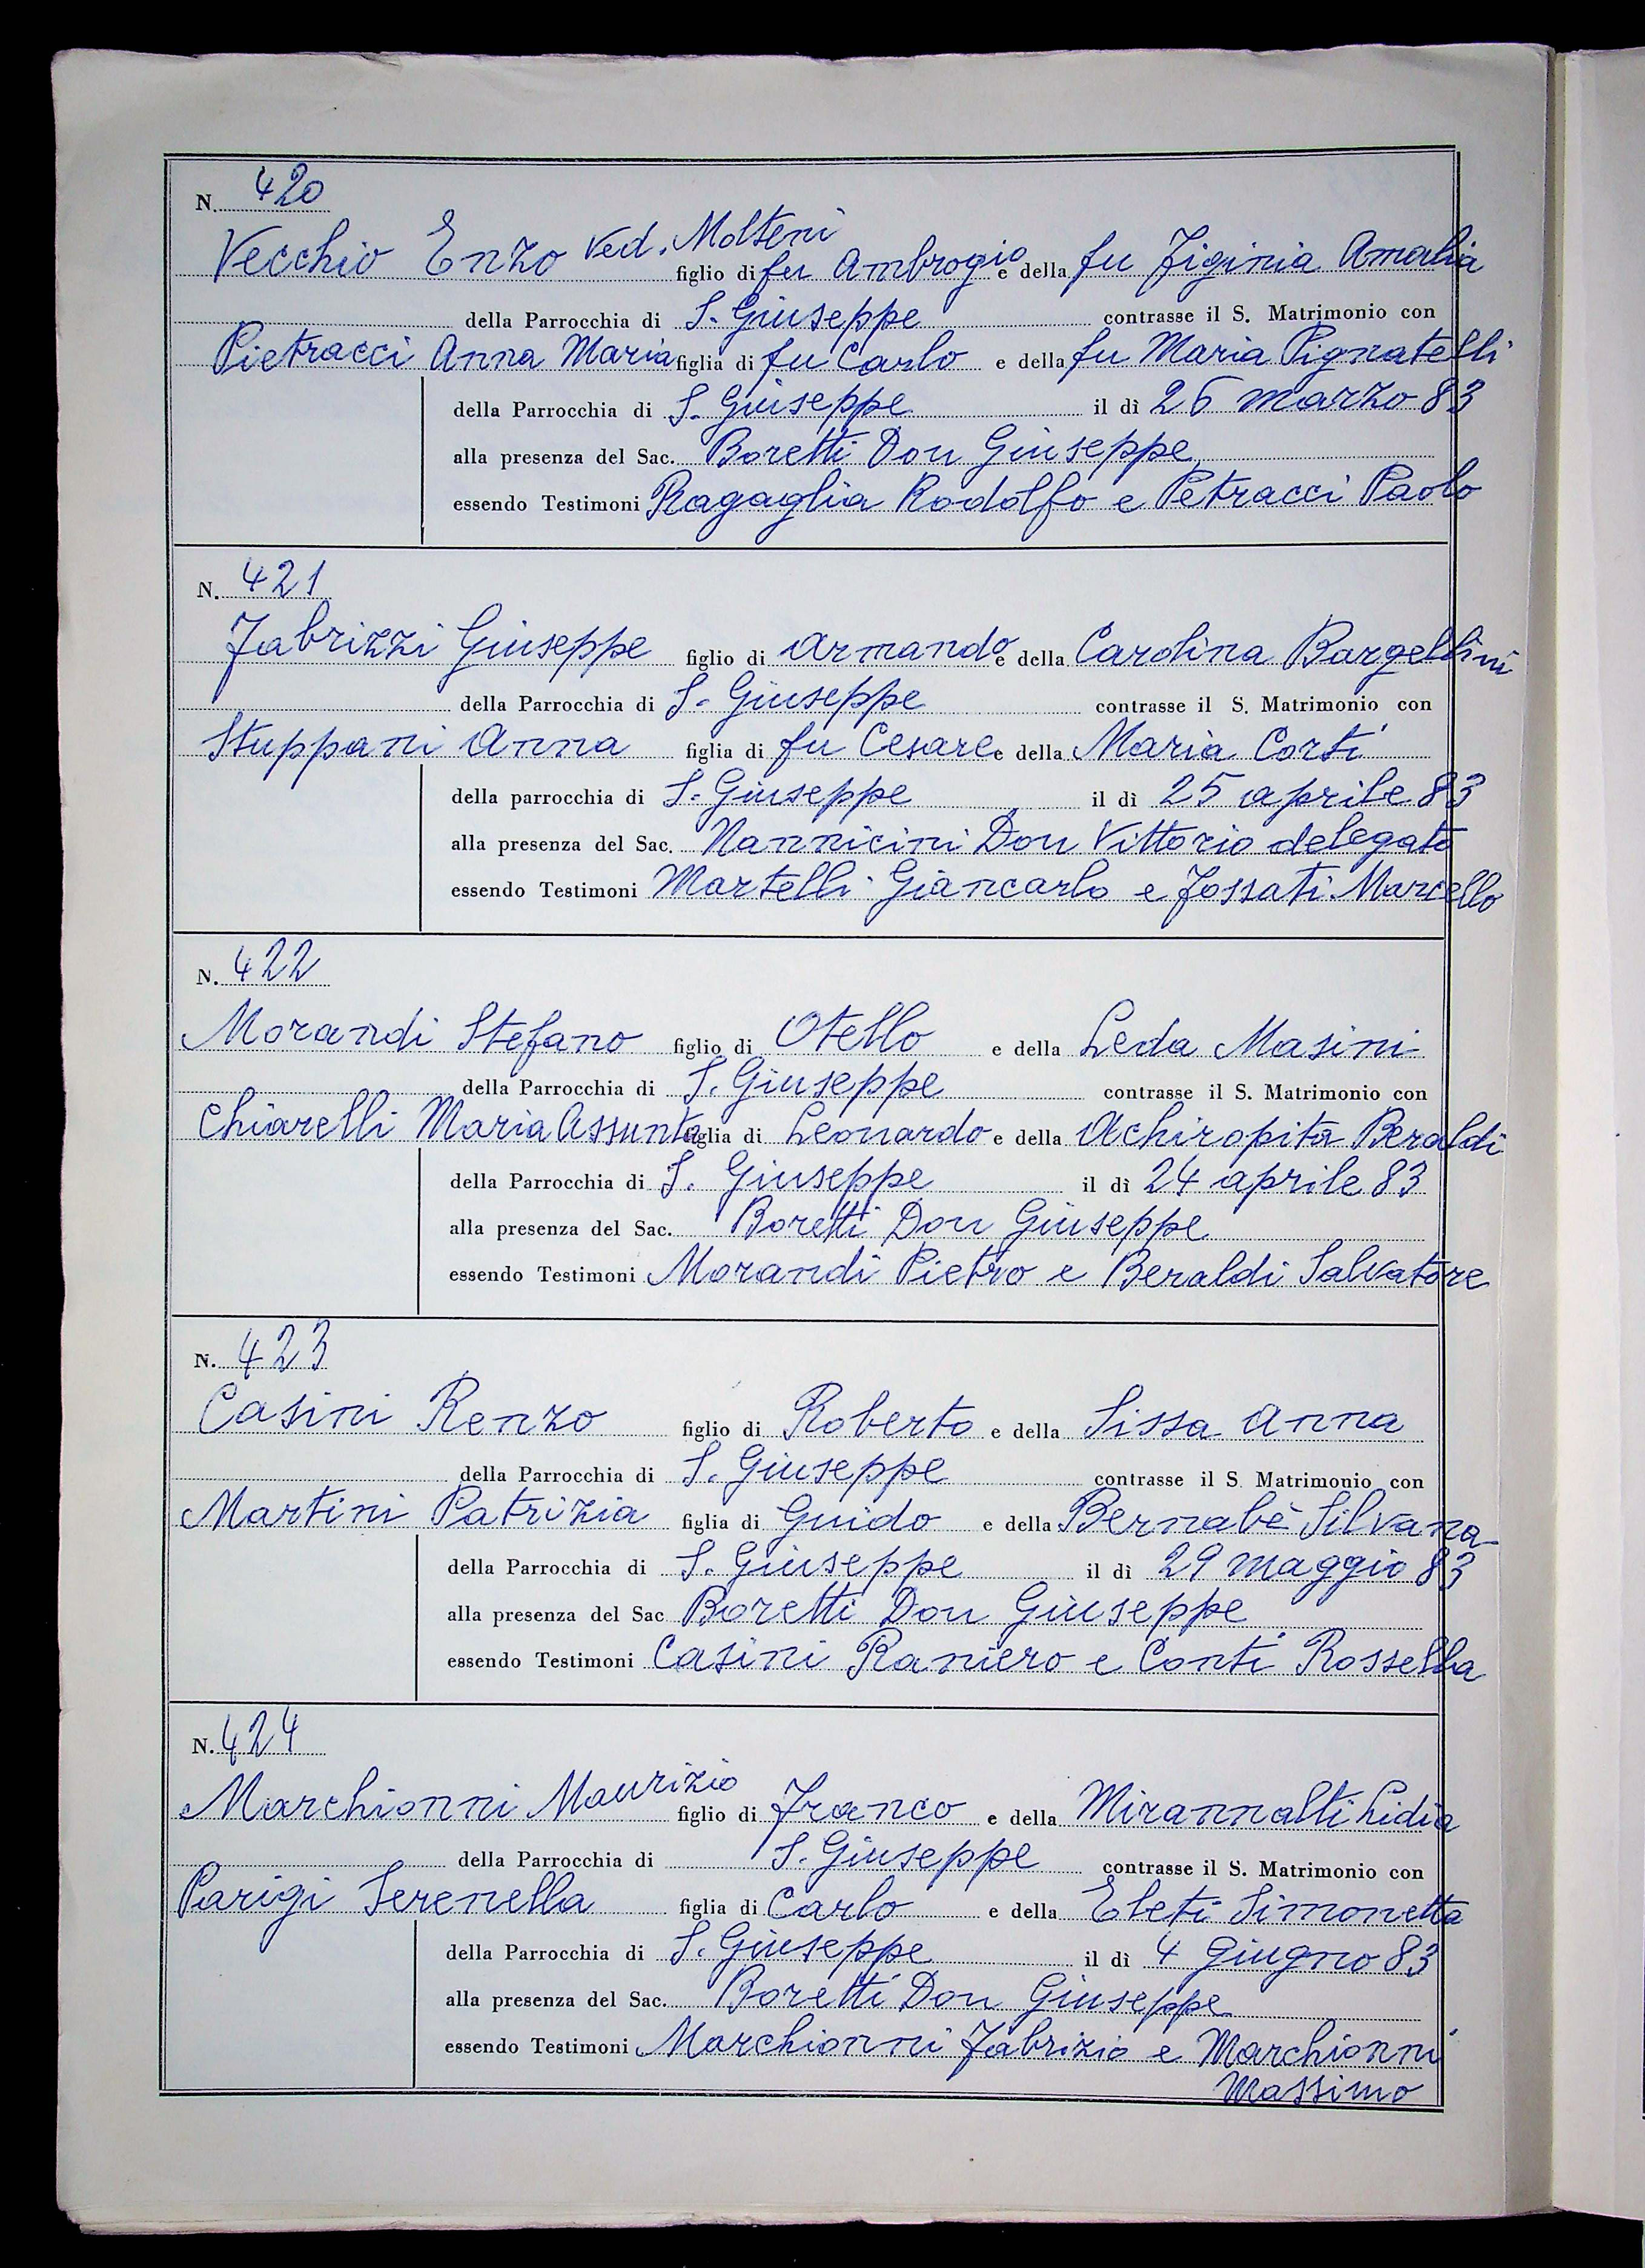 N. 420
Vecchio Enzo ved. Molteni figlio di fu Ambrogio e della fu Figinia Amalia
della Parrocchia di S. Giuseppe contrasse il S. Matrimonio con
Pietracci Anna Maria figlia di fu Carlo e della fu Maria Pignatelli
della Parrocchia di S. Giuseppe il dì 26 marzo 83
alla presenza del Sac. Boretti Don Giuseppe
essendo Testimoni Ragaglia Rodolfo e Petracci Paolo
N. 421
Fabrizzi Giuseppe figlio di Armando e della Carolina Bargellini
della Parrocchia di S. Giuseppe contrasse il S. Matrimonio con
Stuppani Anna figlia di fu Cesare e della Maria Corti
della parrocchia di S. Giuseppe il dì 25 aprile 83
alla presenza del Sac. Nannicini Don Vittorio delegato
essendo Testimoni Martelli Giancarlo e Fossati Marcello
N. 422
Morandi Stefano figlio di Otello e della Leda Masini
della Parrocchia di S. Giuseppe contrasse il S. Matrimonio con
Chiarelli Maria Assunta figlia di Leonardo e della Achiropita Beraldi
della Parrocchia di S. Giuseppe il dì 24 aprile 83
alla presenza del Sac. Boretti Don Giuseppe
essendo Testimoni Morandi Pietro e Beraldi Salvatore
N. 423
Casini Renzo figlio di Roberto e della Sissa Anna
della Parrocchia di S. Giuseppe contrasse il S. Matrimonio con
Martini Patrizia figlia di Guido e della Bernabè Silvana
della Parrocchia di S. Giuseppe il dì 29 maggio 83
alla presenza del Sac Boretti Don Giuseppe
essendo Testimoni Casini Raniero e Conti Rossella
N. 424
Marchionni Maurizio figlio di Franco e della Mirannalti Lidia
della Parrocchia di S. Giuseppe contrasse il S. Matrimonio con
Parigi Serenella figlia di Carlo e della Eleti Simonetta
della Parrocchia di S. Giuseppe il dì 4 Giugno 83
alla presenza del Sac. Boretti Don Giuseppe
essendo Testimoni Marchionni Fabrizio e Marchionni
Massimo